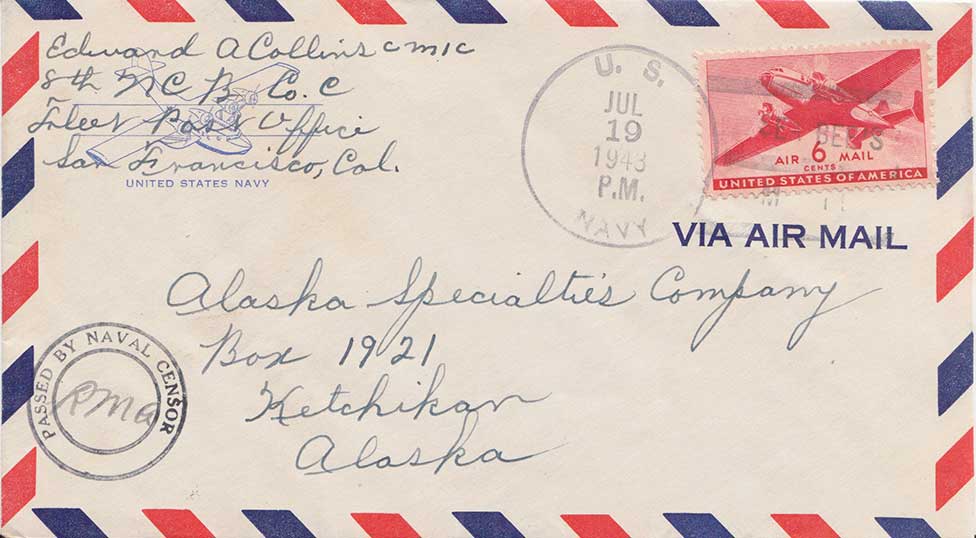 Edward A Collins CM1C
8th N C B Co. C
Fleet Post Office
San Francisco, Cal.
UNITED STATES NAVY
U. S.
JUL
19
1943
P.M.
NAVY
BEE'S
AIR 6 MAIL
CENTS
UNITED STATES OF AMERICA
VIA AIR MAIL
Alaska Specialties Company
Box 1921
Ketchikan
Alaska
PASSED BY NAVAL CENSOR